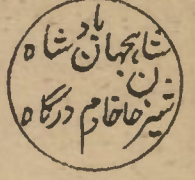 شاہجہان بادشاہ
خان خادم درگاہ